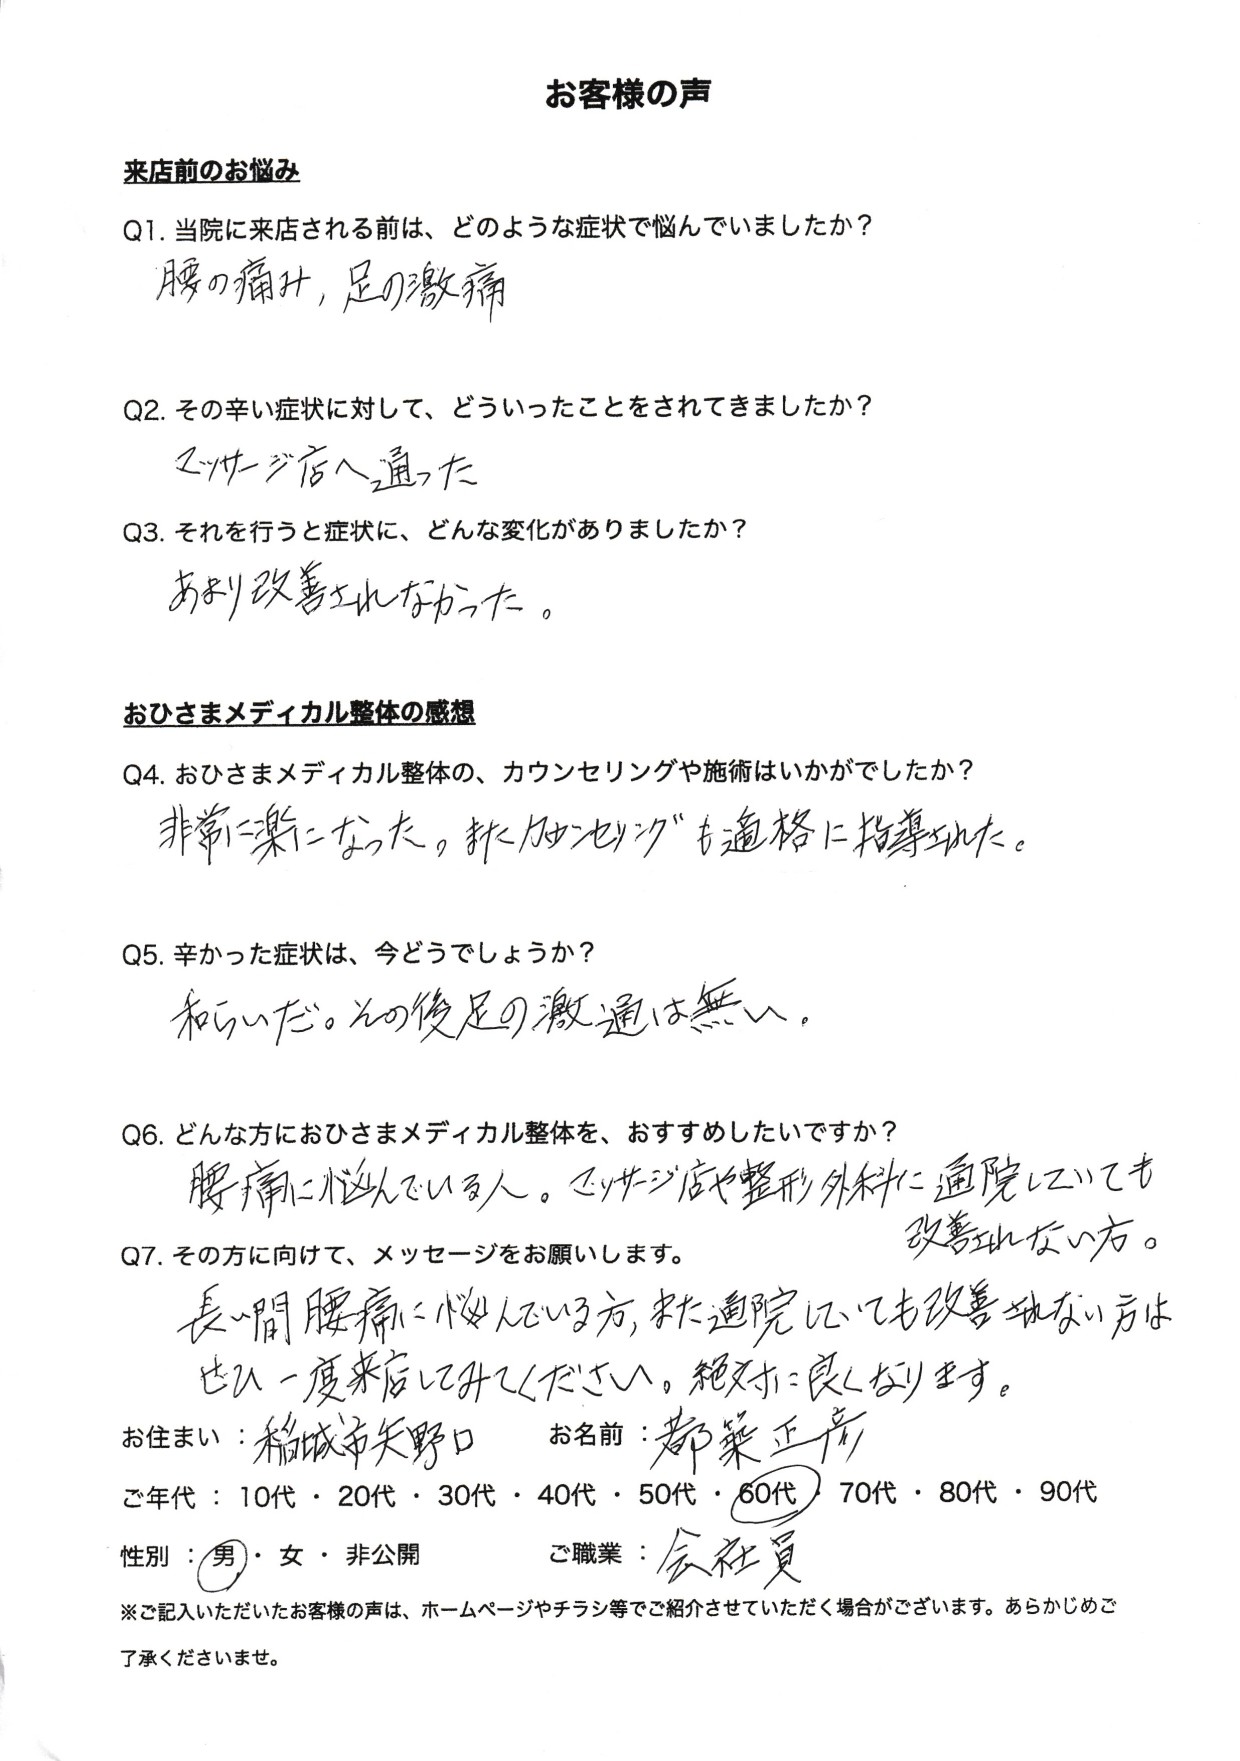 お客様の声
来店前のお悩み
Q1. 当院に来店される前は、どのような症状で悩んでいましたか？
腰の痛み, 足の激痛
Q2. その辛い症状に対して、どういったことをされてきましたか？
マッサージ店へ通った
Q3. それを行うと症状に、どんな変化がありましたか？
あまり改善されなかった。
おひさまメディカル整体の感想
Q4. おひさまメディカル整体の、カウンセリングや施術はいかがでしたか？
非常に楽になった。またカウンセリングも適格に指導された。
Q5. 辛かった症状は、今どうでしょうか？
和らいだ。その後足の激通は無い。
Q6. どんな方におひさまメディカル整体を、おすすめしたいですか？
腰痛に悩んでいる人。マッサージ店や整形外科に通院していても
改善されない方。
Q7. その方に向けて、メッセージをお願いします。
長い間腰痛に悩んでいる方, また通院していても改善されない方は
ぜひ一度来店してみてください。絶対に良くなります。
お住まい ： 稲城市矢野口 お名前 ： 都築正彦
ご年代 ： 10代 ・ 20代 ・ 30代 ・ 40代 ・ 50代 ・ 60代 ・ 70代 ・ 80代 ・ 90代
性別 ： 男 ・ 女 ・ 非公開 ご職業 ： 会社員
※ご記入いただいたお客様の声は、ホームページやチラシ等でご紹介させていただく場合がございます。あらかじめご
了承くださいませ。